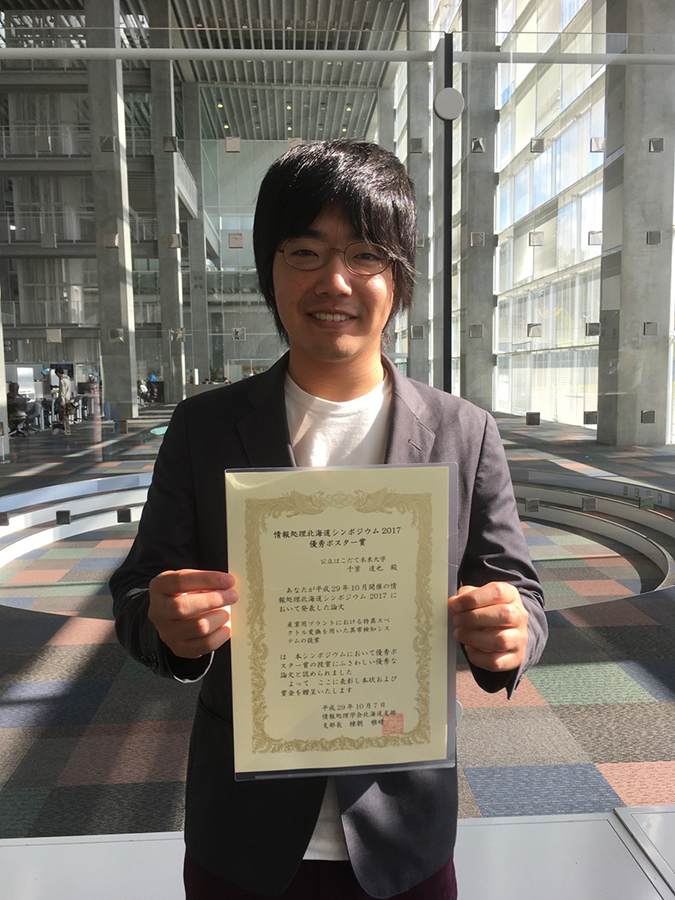 情報処理北海道シンポジウム 2017
優秀ポスター賞
公立はこだて未来大学
千葉 達也 殿
あなたが平成29年10月開催の情
報処理北海道シンポジウム 2017 に
おいて発表した論文
産業用プラントにおける特異スペ
クトル変換を用いた異常検知シス
テムの提案
は 本シンポジウムにおいて優秀ポ
スター賞の授賞にふさわしい優秀な
論文と認められました
よって ここに表彰し本状および
賞金を贈呈いたします
平成29年10月7日
情報処理学会北海道支部
支部長 棟朝 雅晴